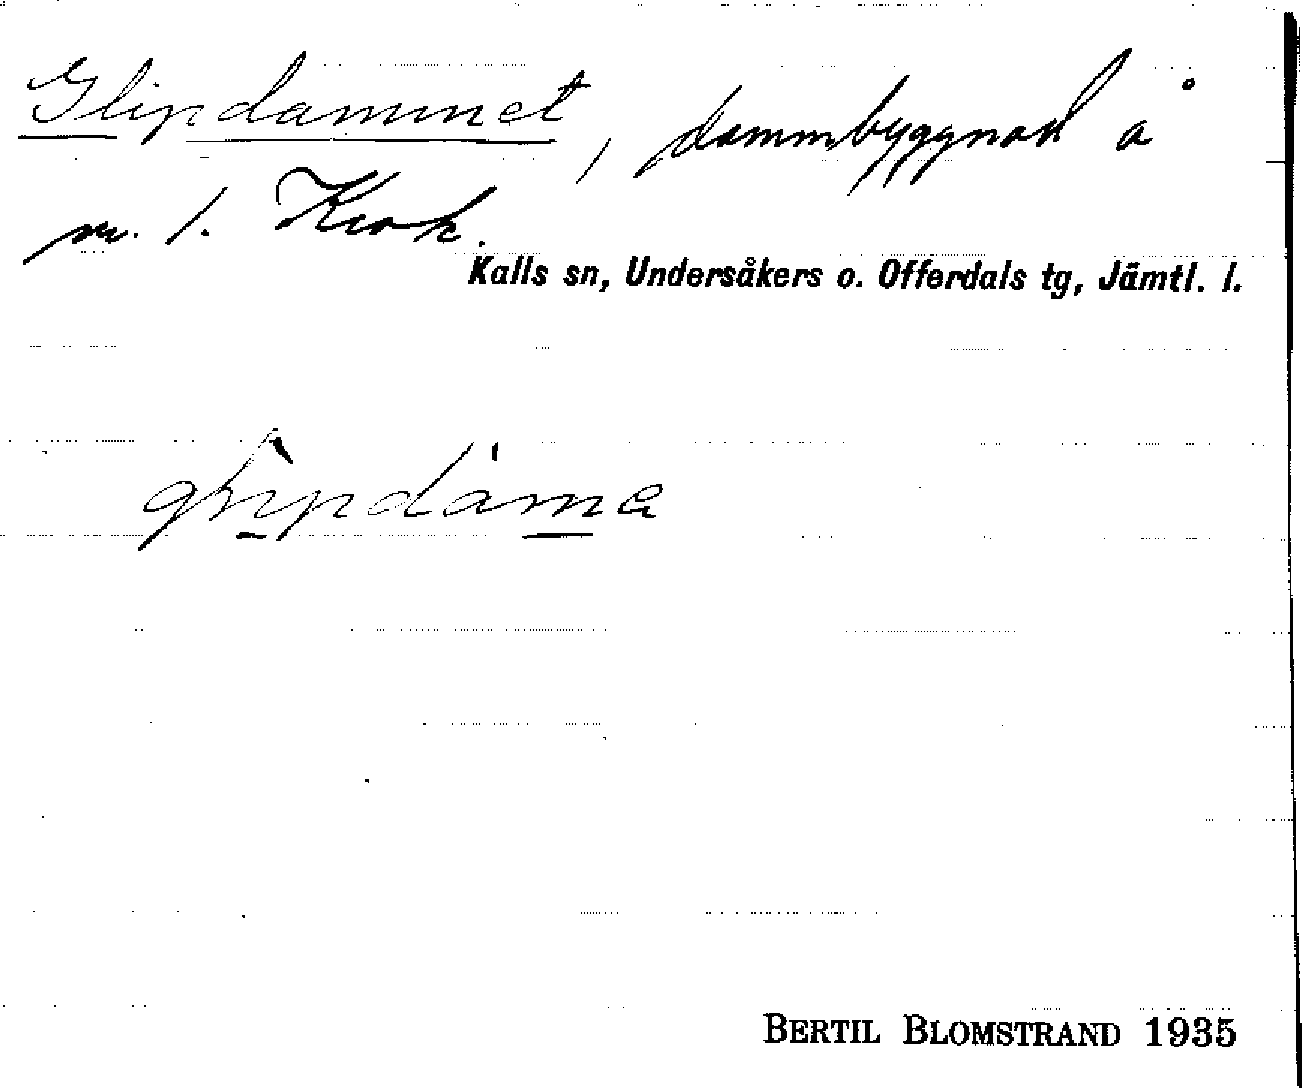 Glipdammet, dammbyggnad å
nr. 1. Krok.
Kalls sn, Undersåkers o. Offerdals tg, Jämtl. l.
BERTIL BLOMSTRAND 1935